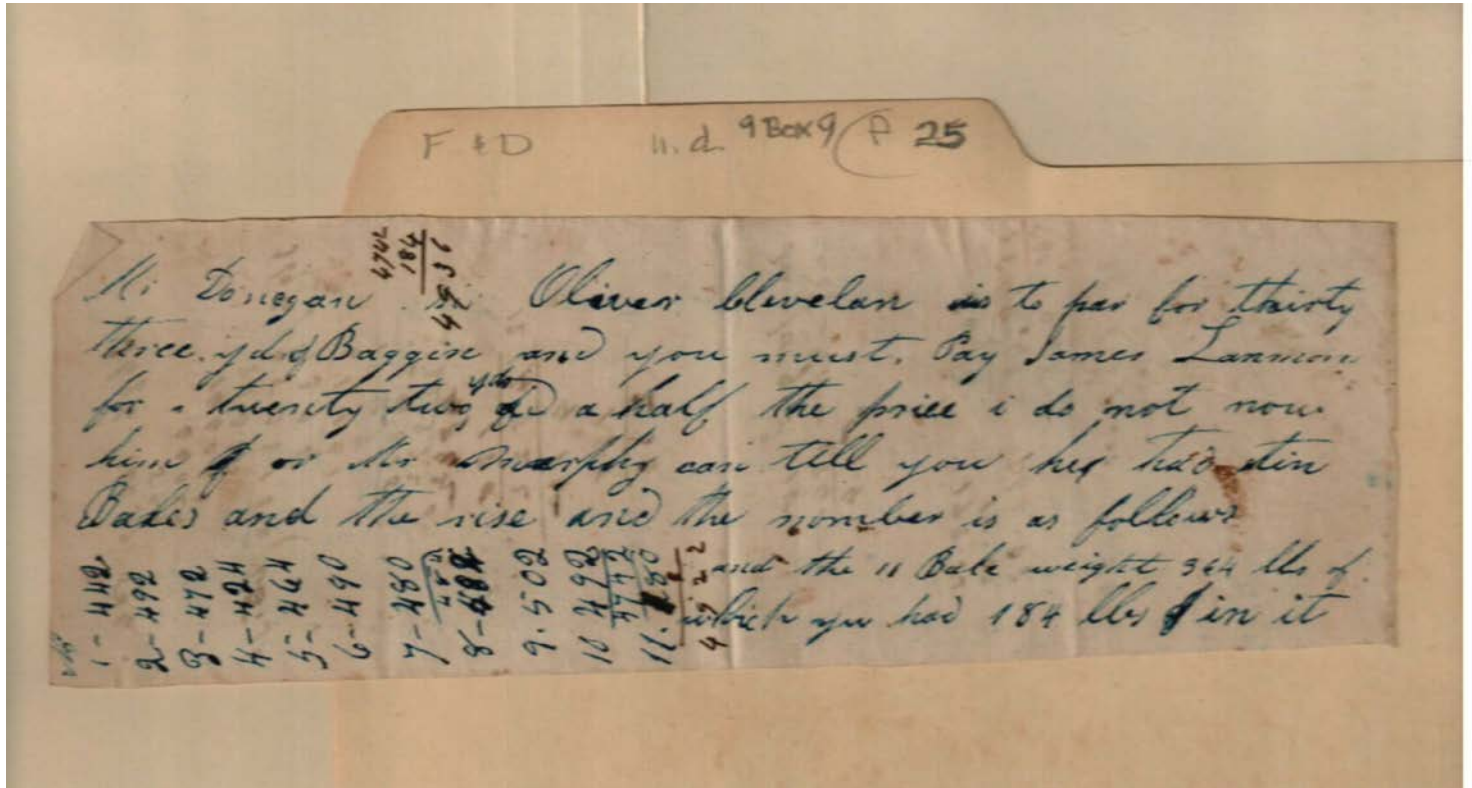 F & D n.d. 9 Box 9 P 25
4742
184
4936
Mr Donegan Oliver Clevelan is to pay for thirty
three yd of Baggin and you must Pay James Lanmon
for twenty two yds & a half the price i do not now
him or Mr Murphy can tell you he had tin
Bales and the rise and the nomber is as follows
1-442
2-492
3-472
4-424
5-464
6-490
7-480
9-502
10 492
and the 11 Bale weight 364 lbs of
which you had 184 lbs in it